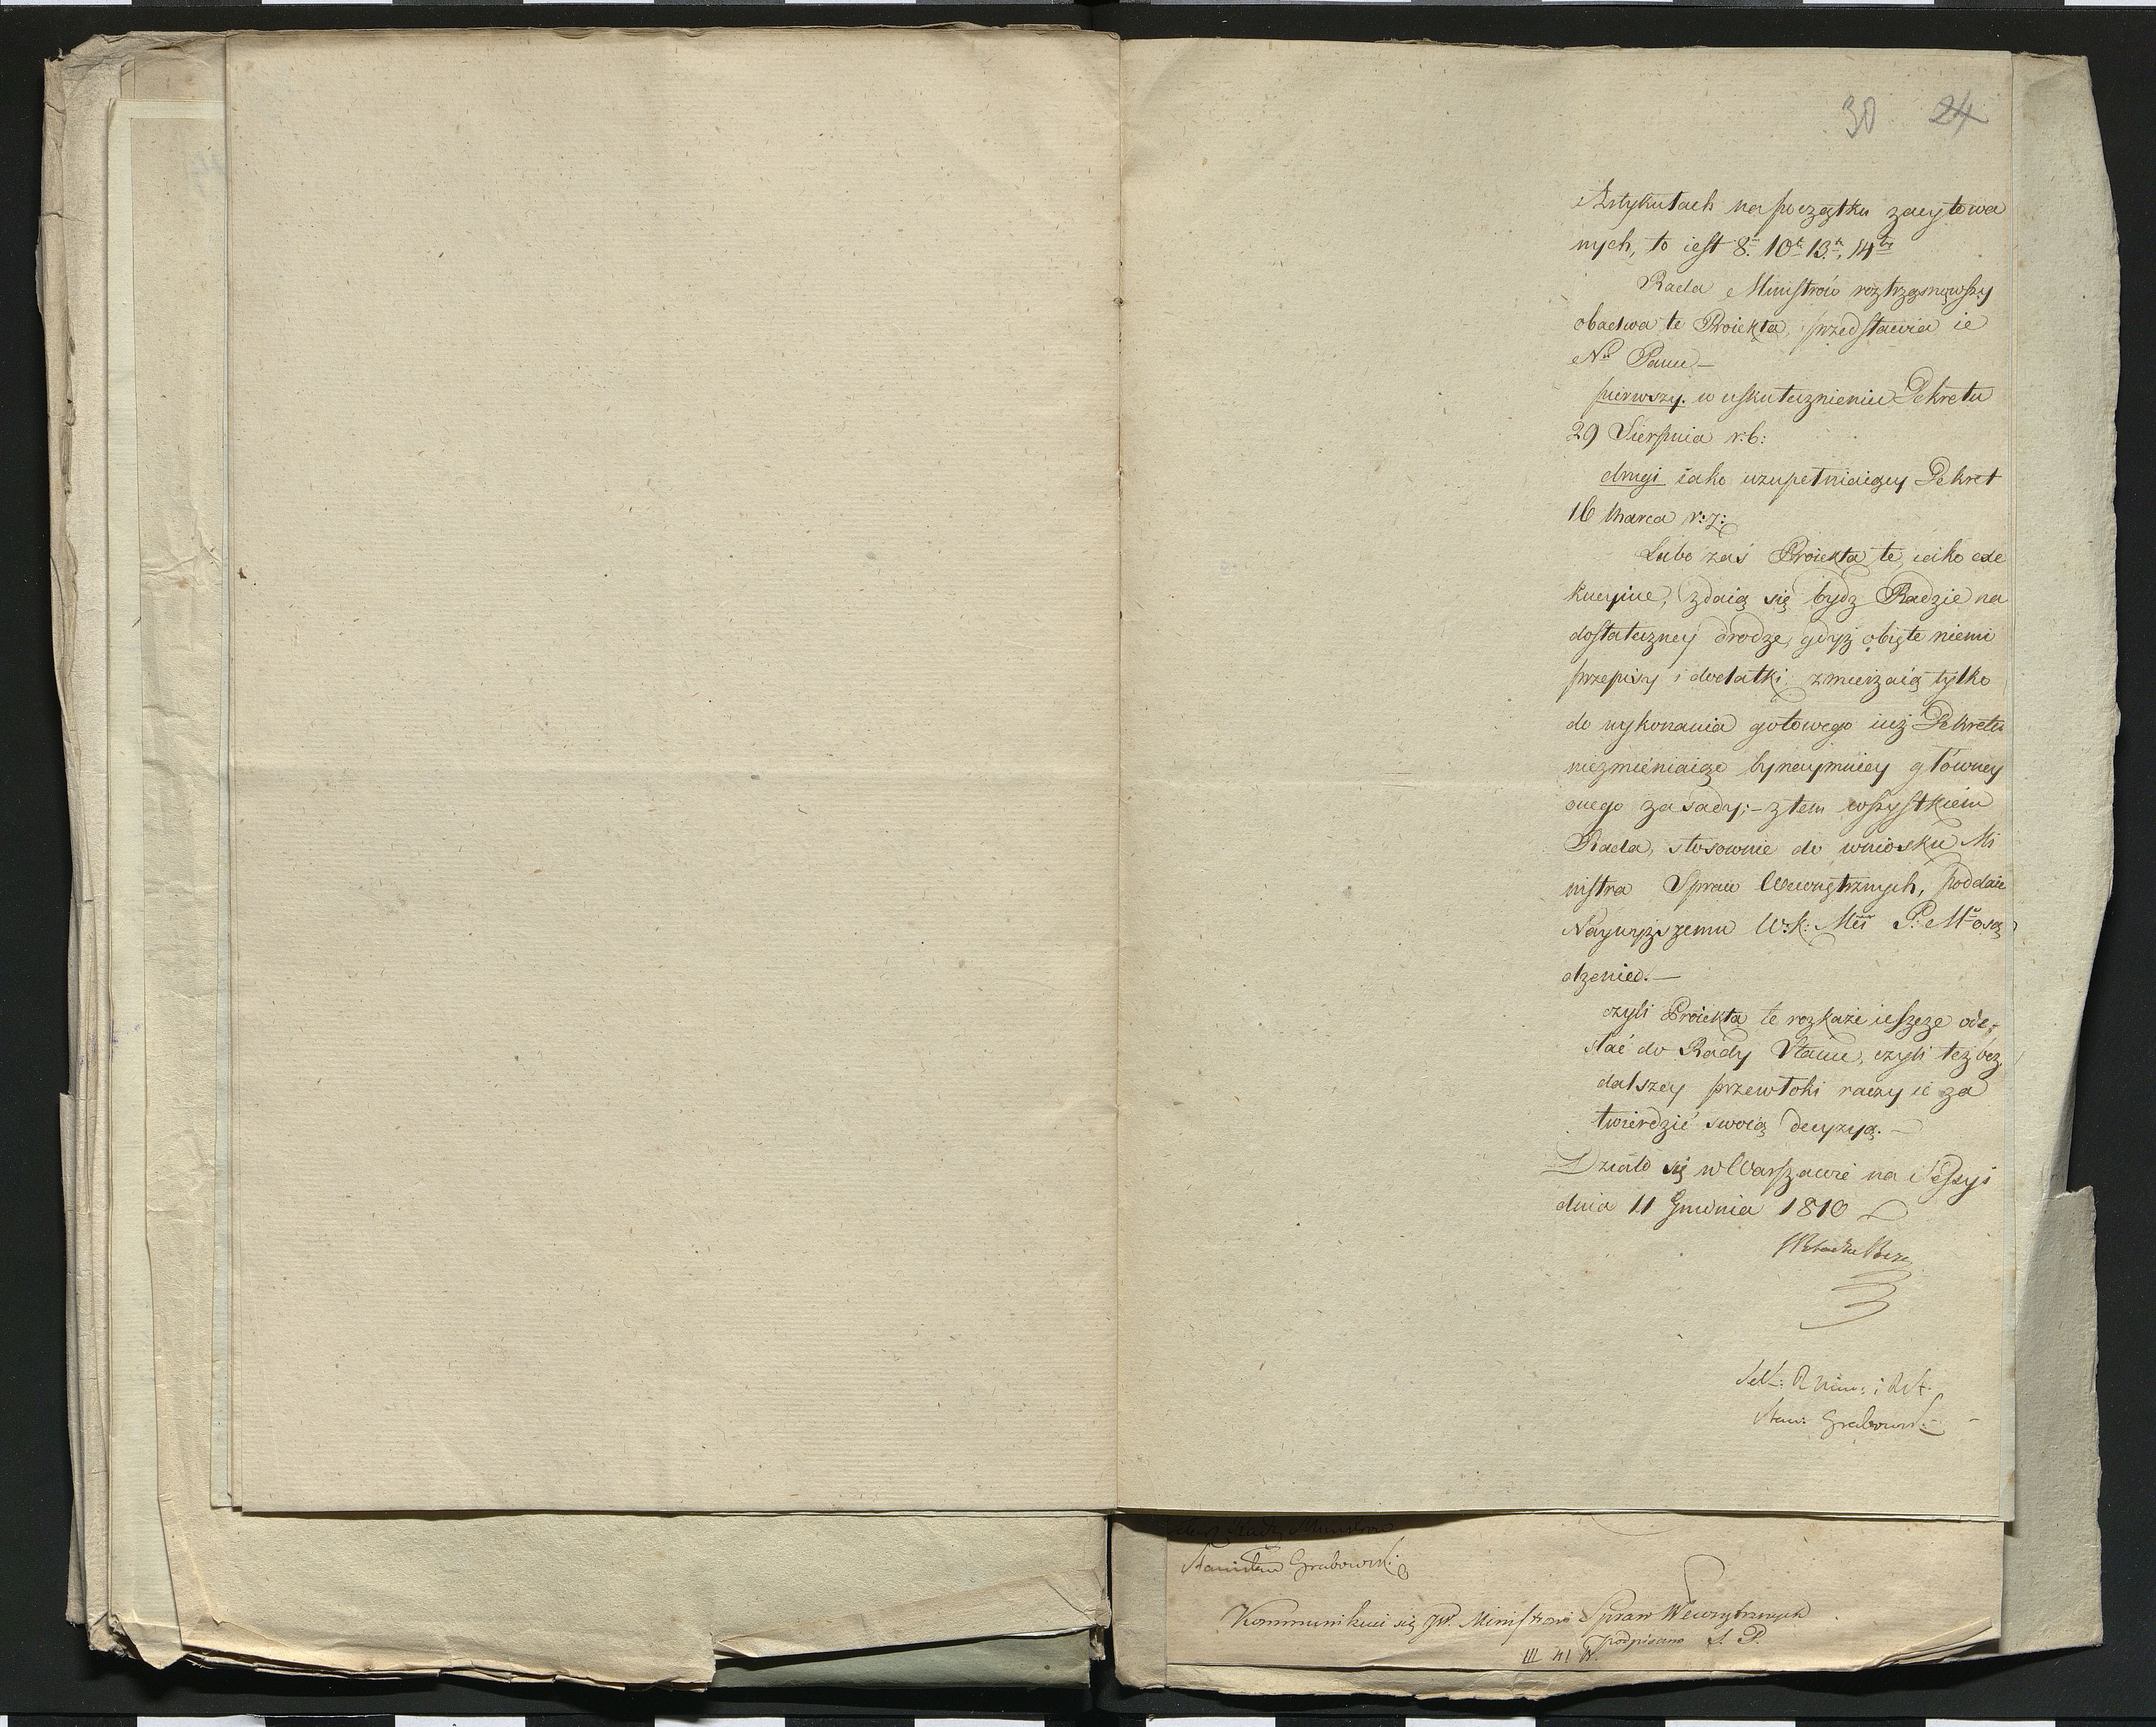 30 24
Artykułach na początku zacytowa
nych, to iest 8. 10. 13. 14
Rada Ministrów roztrząsnąwszy
obadwa te Proiekta, przedstawia ie
Nu Panu —
pierwszy. w uskutecznieniu Dekretu
29 Sierpnia r: b:
drugi iako uzupełniaiący Dekret
16 Marca r: z:
Lubo zaś Proiekta te, iako exe
kucyine, zdaią się bydź Radzie na
dostateczney drodze, gdyż obięte niemi
przepisy i dodatki zmierzaią tylko
do wykonania gotowego iuż Dekretu
niezmieniaiąc bynaymniey główney
onego zasady; – z tem wszystkiem
Rada, stosownie do wniosku Mi
nistra Spraw Wewnętrznych, poddaie
Naywyższemu W: K: Mci P: M: osą
dzeniu. —
czyli Proiekta te rozkaże ieszcze ode,,
słać do Rady Stanu, czyli też bez
dalszey przewłoki raczy ie za
twierdzić swoią decyzyą. —
Działo się w Warszawie na Sessyi
dnia 11 Grudnia 1810
Stan: Grabowski
Rady Ministrów
Stanisław Grabowski
Kommunikuie się JW. Ministrowi Spraw Wewnętrznych
podpisano S. P.
III 41 W.